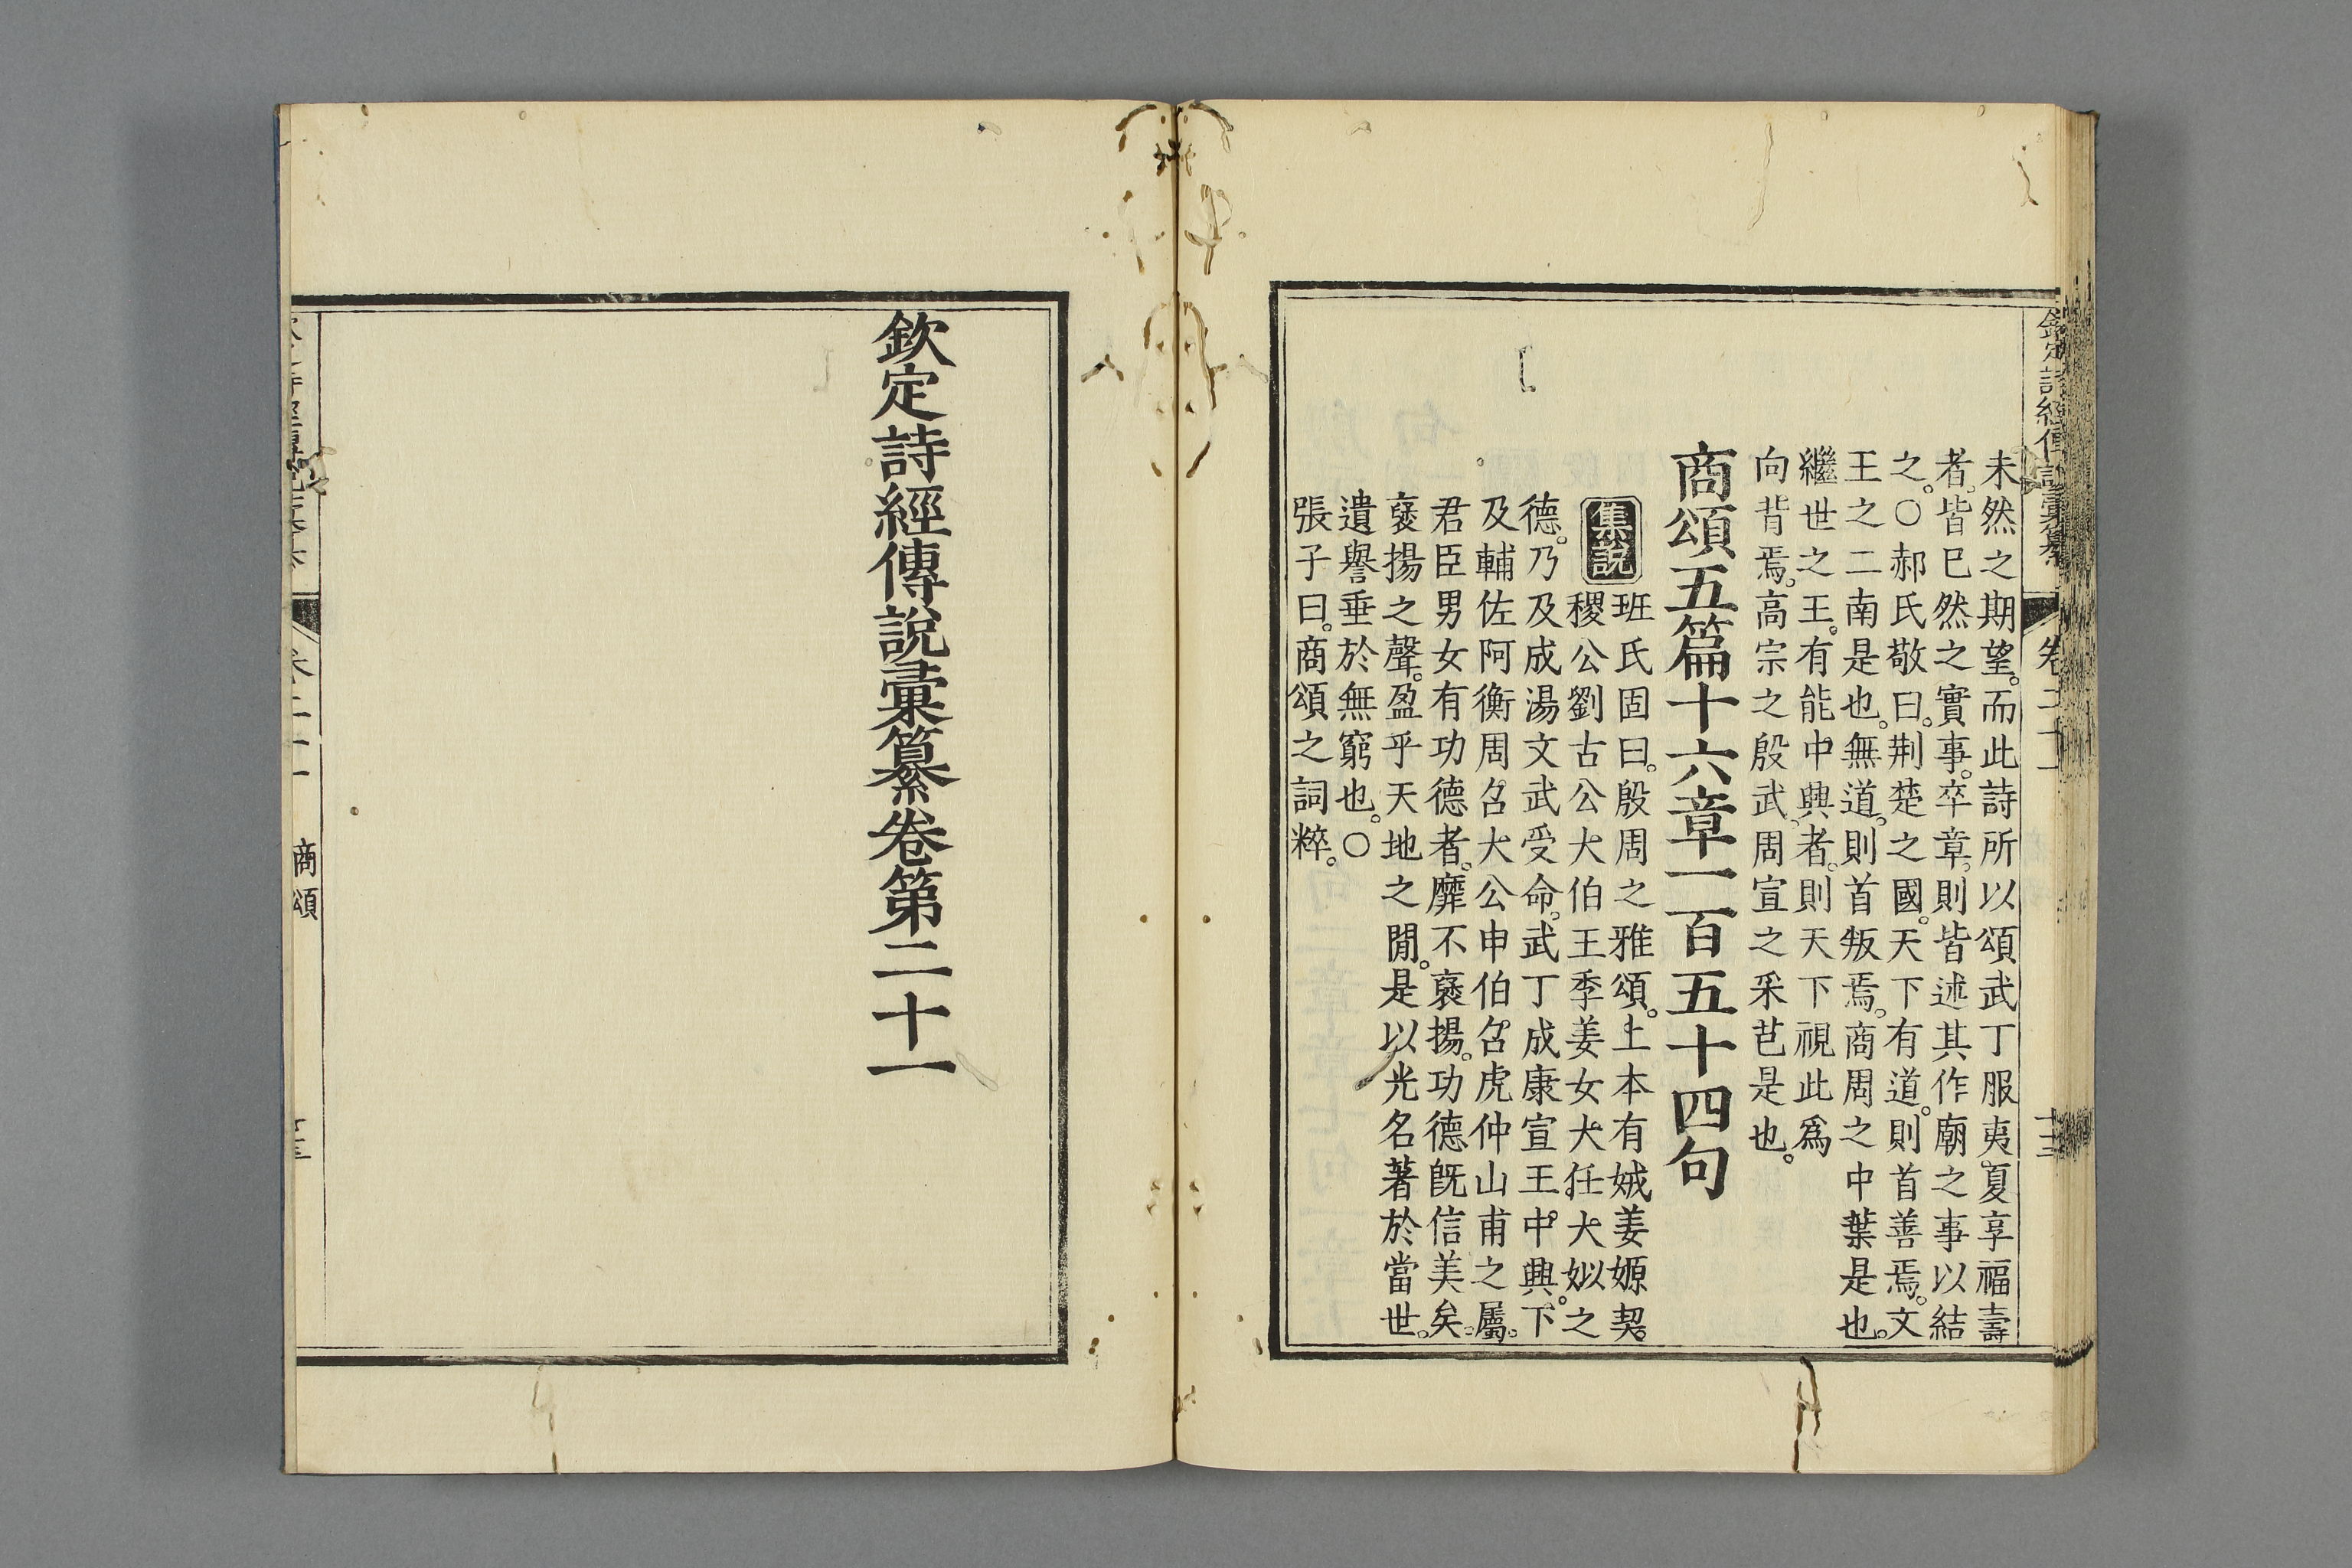 欽定詩經傳說彙纂 卷二十一 十三
未然之期望。而此詩所以頌武丁服夷夏享福壽
者。皆巳然之實事。卒章。則皆述其作廟之事以結
之。○郝氏敬曰。荆楚之國。天下有道。則首善焉。文
王之二南是也。無道。則首叛焉。商周之中葉是也。
繼世之王。有能中興者。則天下視此爲
向背焉。高宗之殷武。周宣之采芑是也。
商頌五篇十六章一百五十四句
集說
班氏固曰。殷周之雅頌。上本有娀姜嫄契。
稷公劉古公大伯王季姜女大任大姒之
德。乃及成湯文武受命。武丁成康宣王中興。下
及輔佐阿衡周召大公申伯召虎仲山甫之屬。
君臣男女有功德者。靡不褒揚。功德旣信美矣。
褒揚之聲。盈乎天地之閒。是以光名著於當世。
遺譽垂於無窮也。○
張子曰。商頌之詞粹。
欽定詩經傳說彙纂卷第二十一
商頌